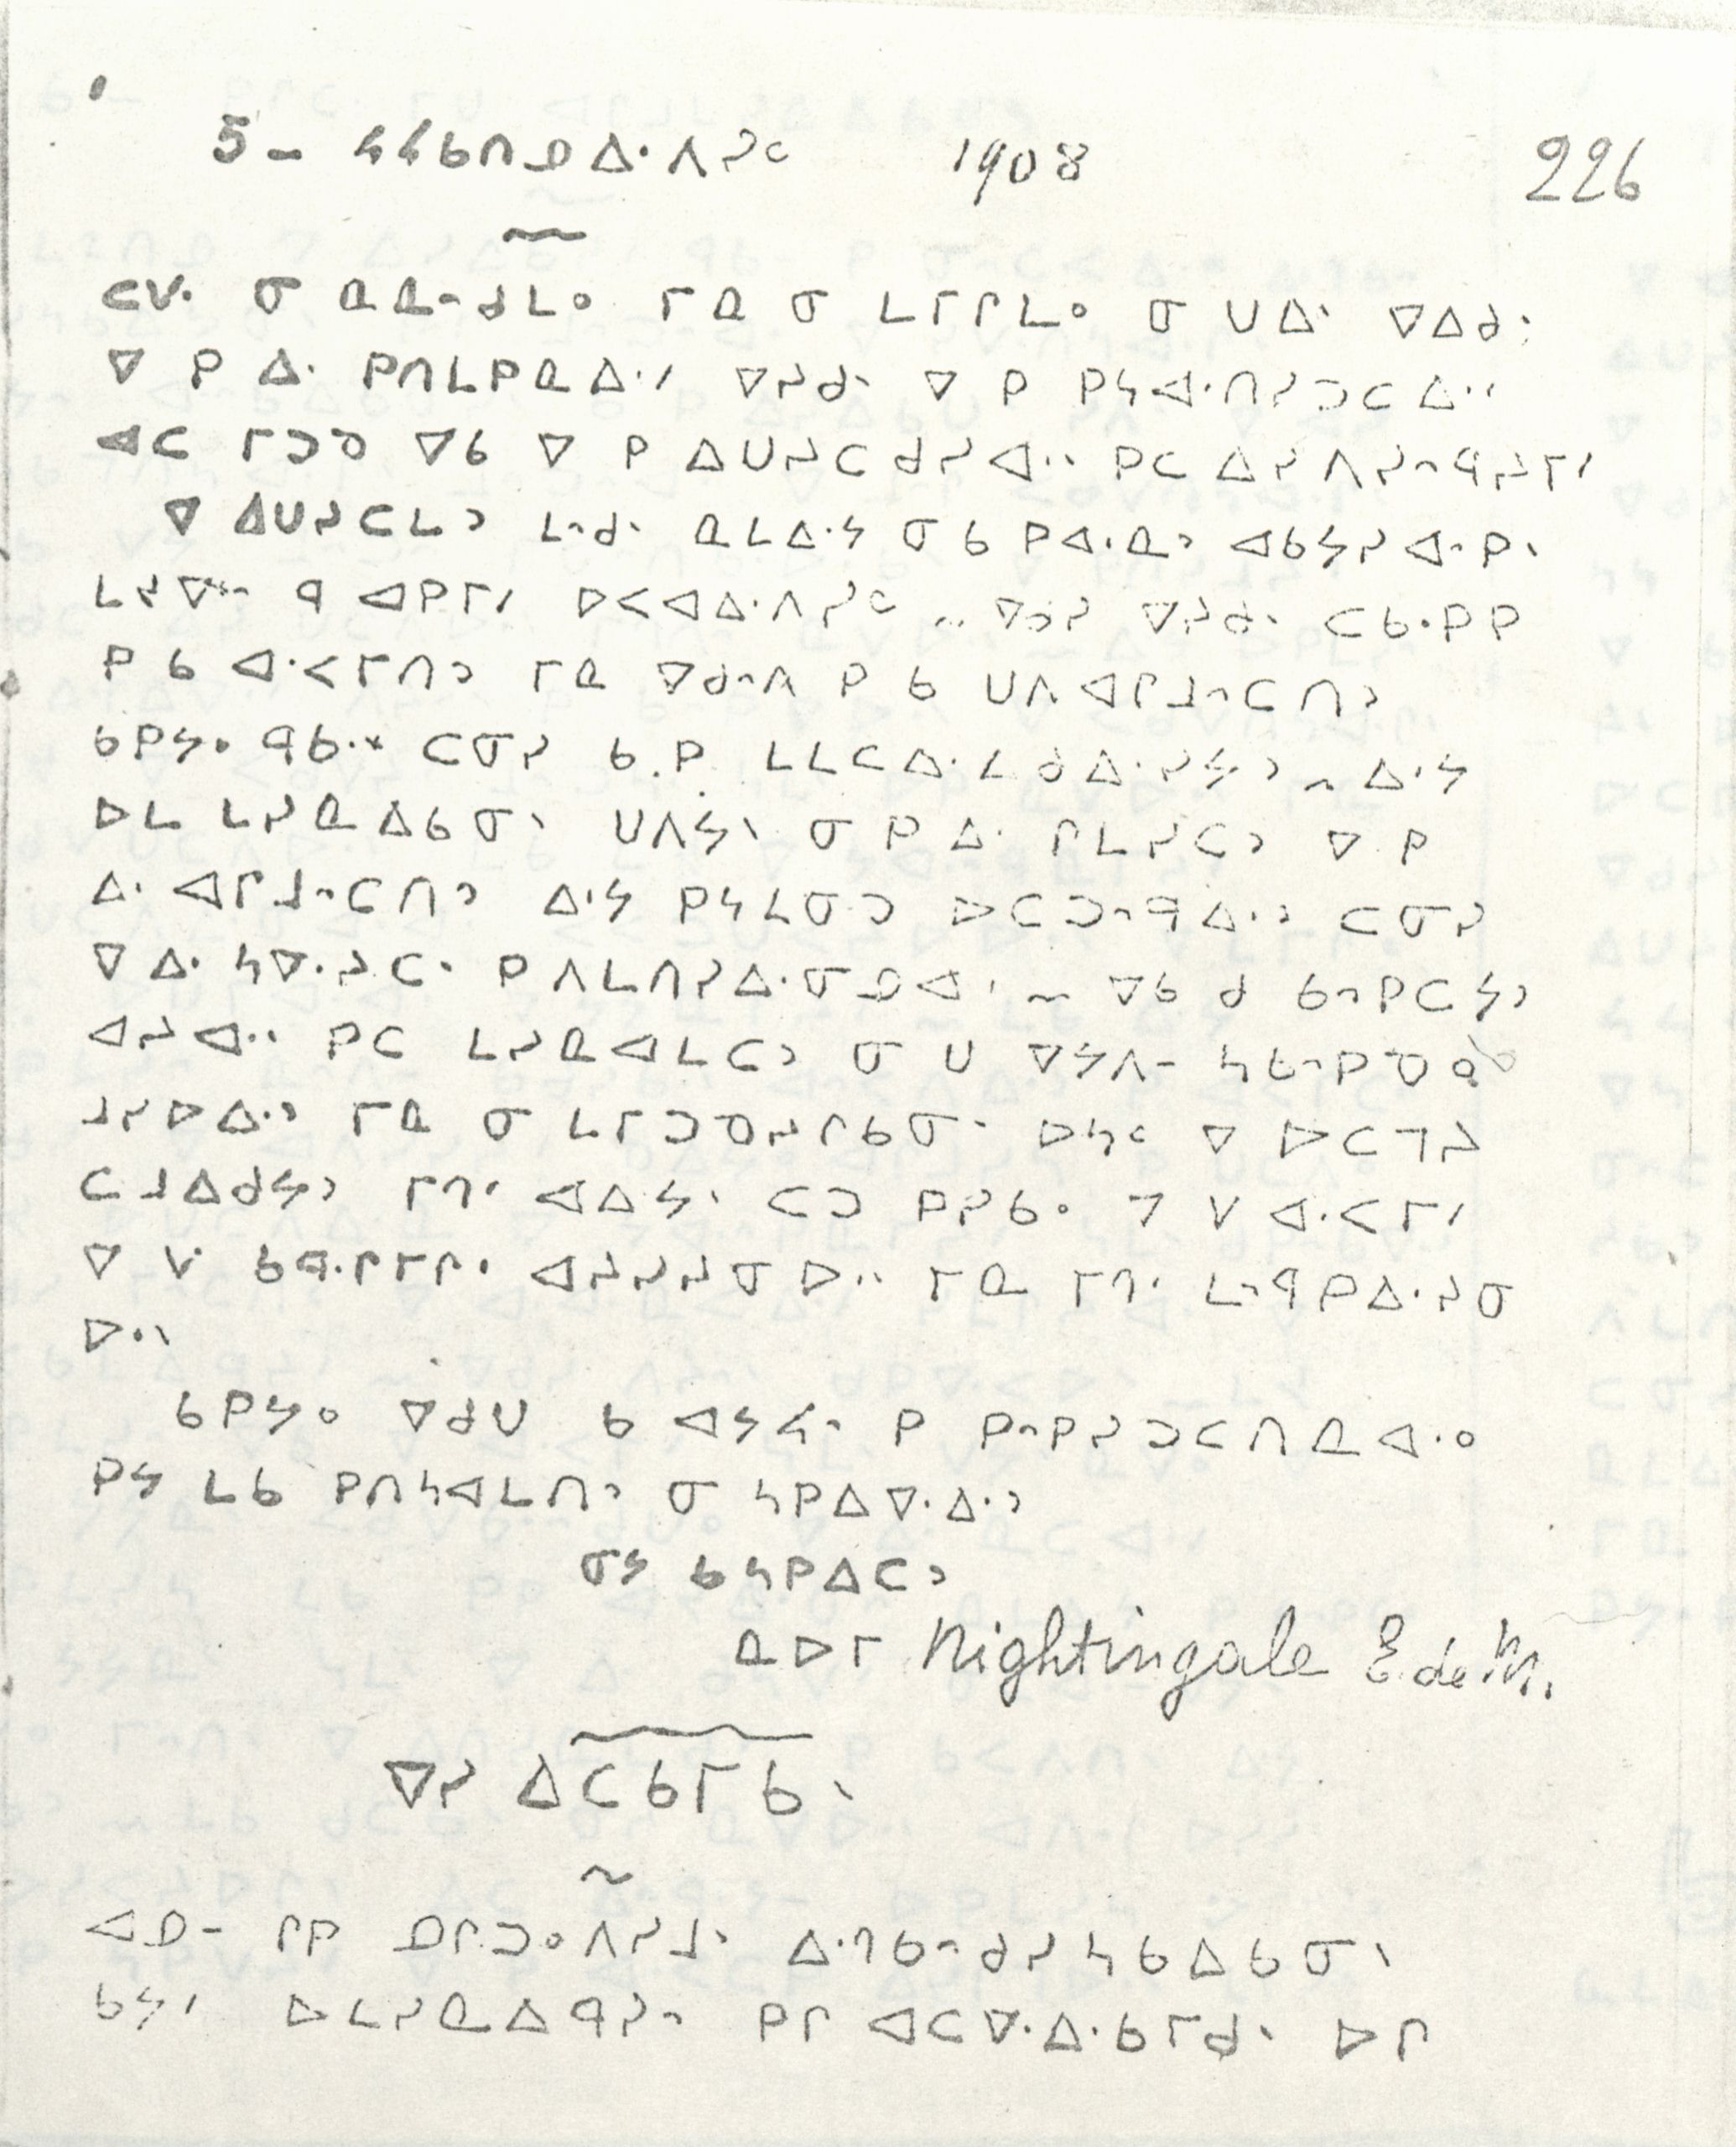 5- ᓴᓴᑲᑎᓄ ᐃᐧᐱᓯᒼ 1908 226
ᑕᐯᐧ ᓂ ᓇᓇᐢᑯᒪᐤ ᒥᓇ ᓂ ᒪᒥᒋᒪᐤ ᓂ ᑌᐃᐧ ᐁᐃᑯ
ᐁ ᑭ ᐃᐧ ᑭᑎᒪᑭᓇᐃᐧᐟ ᐁᓯᑯᐠ ᐁ ᑭ ᑭᓴᐊᐧᑎᓯᑐᑕᐃᐧᐟ
ᐊᑕ ᒥᑐᓀ ᐁᑲ ᐁ ᑭ ᐃᑌᓯᑕᑯᓯᐊᐧᐠ ᑭᑕ ᐃᓯ ᐱᓯᐢᑫᓯᒥᐟ
ᐁ ᐃᑌᓯᑕᒪᐣ ᒪᐢᑯᐨ ᓇᒪᐃᐧᔭ ᓂᑲ ᑭᐊᐧᓇᐣ ᐊᑲᔭᓯᐊᐧᑭᐠ
ᑫ ᐊᑭᒥᐟ ᐅᐸᐊᐃᐧᐱᓯᒼ ᐁᑯᓯ ᐁᓯᑯᐠ ᑕᑲᐧᑭᑭ
ᑭ ᑲ ᐊᐧᐸᒥᑎᐣ ᒥᓇ ᐁᑯᐢᐱ ᑭ ᑲ ᑌᐱ ᐊᒋᒧᐢᑕᑎᐣ
ᑲᑭᔭᐤ ᑫᑲᐧᕀ ᑕᓂᓯ ᑲ ᑭ ᒪᒪᑕᐃᐧᒪᑯᐃᐧᓯᔭᐣ ᐃᐧᔭ
ᐅᒪ ᒪᓯᓇᐃᑲᓂᐠ ᑌᐱᔭᐠ ᓂ ᑭ ᐃᐧ ᒋᒪᓯᑕᐣ ᐁ ᑭ
ᐃᐧ ᐊᒋᒧᐢᑕᑎᐣ ᐃᐧᔭ ᑭᓴᒪᓂᑐ ᐅᑕᑐᐢᑫᐃᐧᐣ ᑕᓂᓯ
ᐁ ᐃᐧ ᓴᐁᐧᓯᑕᐧ ᑭᐱᒪᑎᓯᐃᐧᓂᓄᐊᐧ ᐁᑲ ᑯ ᑲᐢᑭᑕᔭᐣ
ᐊᓯᐊᐧᐠ ᑭᑕ ᒪᓯᓇᐊᒪᑕᐣ ᓂ ᑌ ᐁᔭᐱᐨ ᓴᑲᐢᑭᓀ
ᒧᓯᐅᐃᐧᐣ ᒥᓇ ᓂ ᒪᒥᑐᓀᓯᒋᑲᓂᐠ ᐅᓴᒼ ᐁ ᐅᑕᒣᓯ
ᑕᒧᐃᑯᔭᐣ ᒥᒉᐟ ᐊᐃᔭᐠ ᑕᑐ ᑭᓯᑲᐤ ᒣ ᐯ ᐊᐧᐸᒥᐟ
ᐁ ᐯ ᑲᑫᐧᒋᒥᒋᐠ ᐊᓯᓯᓯᓂᐅᐧᐠ ᒥᓇ ᒥᒉᐟ ᒪᐢᑫᑭᐃᐧᓯᓂ
ᐅᐧᐠ
ᑲᑭᔭᐤ ᐁᑯᑌ ᑲ ᐊᔭᓴᐢ ᑭ ᑭᐢᑭᓯᑐᑕᑎᓇᐊᐧᐤ
ᑭᔭ ᒪᑲ ᑭᑎᓴᐊᒪᑎᐣ ᓂ ᓴᑭᐃᐁᐧᐃᐧᐣ
ᓂᔭ ᑲᓴᑭᐃᑕᐣ
ᓇᐅᒥ Nightingale E. de M.
ᐁᓯ ᐃᑕᑲᒥᑲᐠ
ᐊᓄᐨ ᒋᑭ ᓄᒋᑐᐤᐱᓯᒧᐠ ᐃᐧᒉᑲᐢᑯᓯᓴᑲᐃᑲᓂᐠ
ᑲᔭᐟ ᐅᒪᓯᓇᐃᑫᓯᐢ ᑭᒋ ᐊᑕᐁᐧᐃᐧᑲᒥᑯᐠ ᐅᒋ